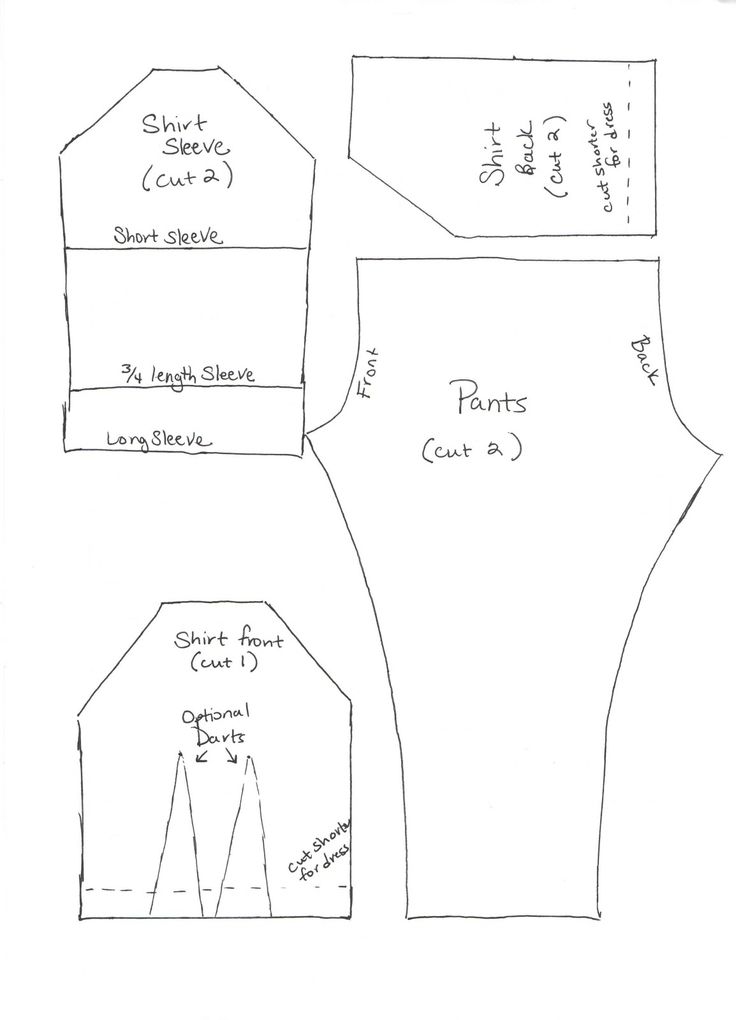 Shirt
Sleeve
(cut 2)
Short sleeve
3/4 length Sleeve
Long Sleeve
Shirt
Back
(cut 2)
cut shorter
for dress
Front
Back
Pants
(cut 2)
Shirt front
(cut 1)
Optional
Darts
cut shorter
for dress